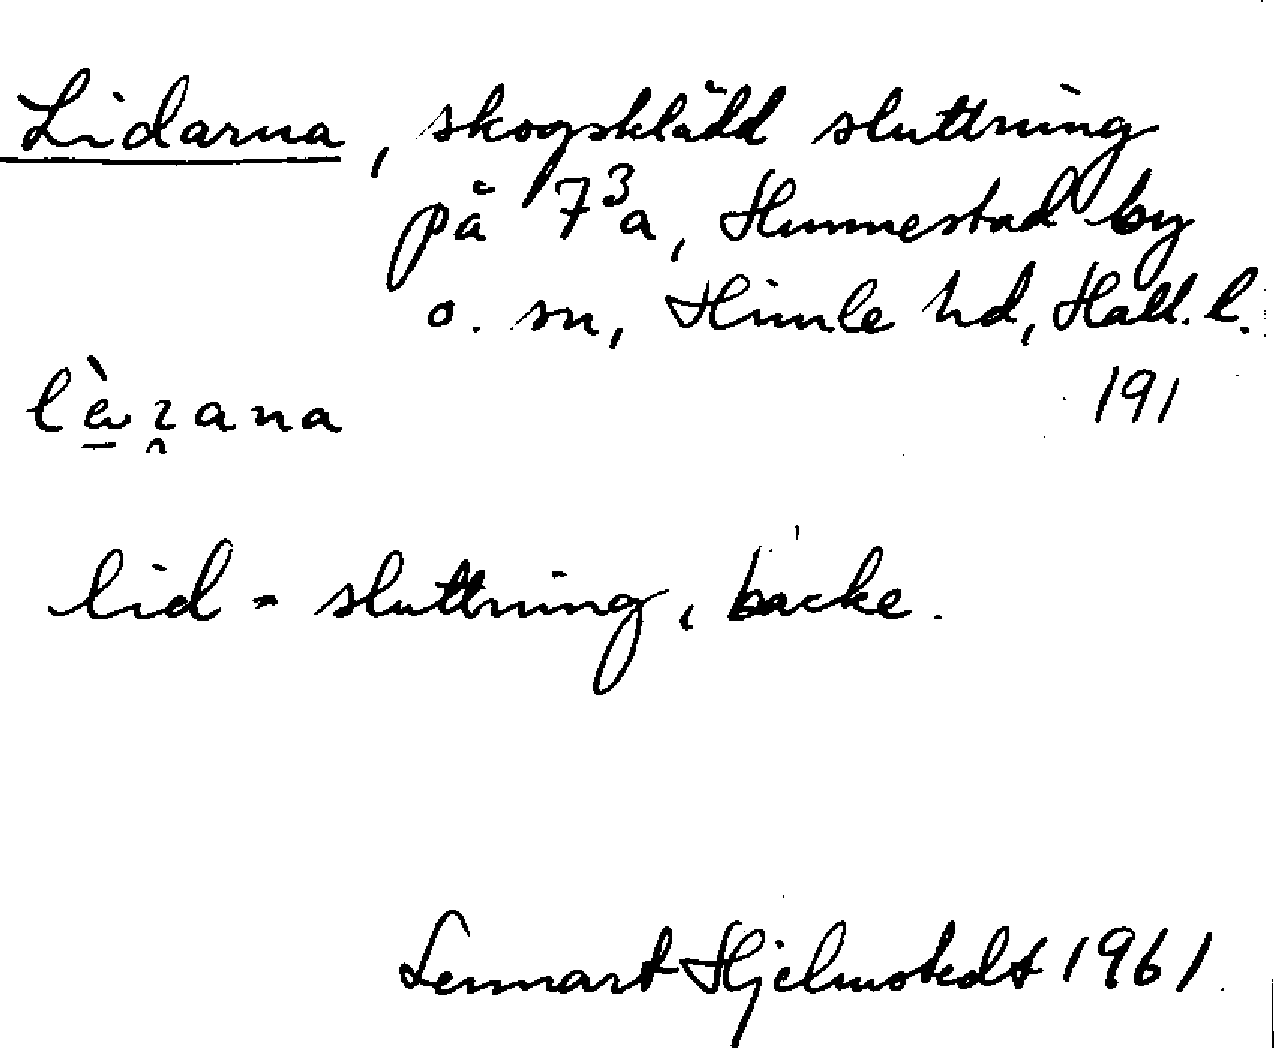 Lidarna, skogsklädd sluttning
på 7³a, Hunnestad by
o. sn, Himle hd, Hall. l.
191
lid - sluttning, backe.
Lennart Hjelmstedt 1961